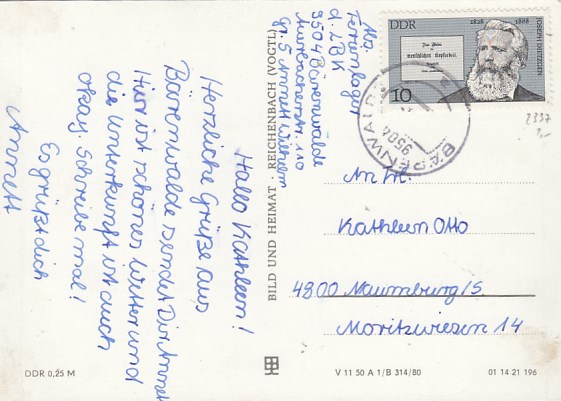 Hallo Kathleen!
Herzliche Grüße aus
Bärenwalde sendet Dir Annett
Hier ist schönes Wetter und
die Unterkunft ist auch
okay. Schreibe mal!
Es grüßt dich
Annett
Abs.
Ferienlager
d. LBK
9504 Bärenwalde
Auerbacherstr. 110
Gr. 5 Annett Wilhelm
BILD UND HEIMAT · REICHENBACH (VOGTL)
DDR
1828
1888
JOSEPH DIETZGEN
Das Wesen
menschlichen Kopfarbeit.
10
BÄRENWALDE
9504
2337
An Frl.
Kathleen Otto
4800 Naumburg/S.
Moritzwiesen 14
DDR 0,25 M
V 11 50 A 1/B 314/80
01 14 21 196